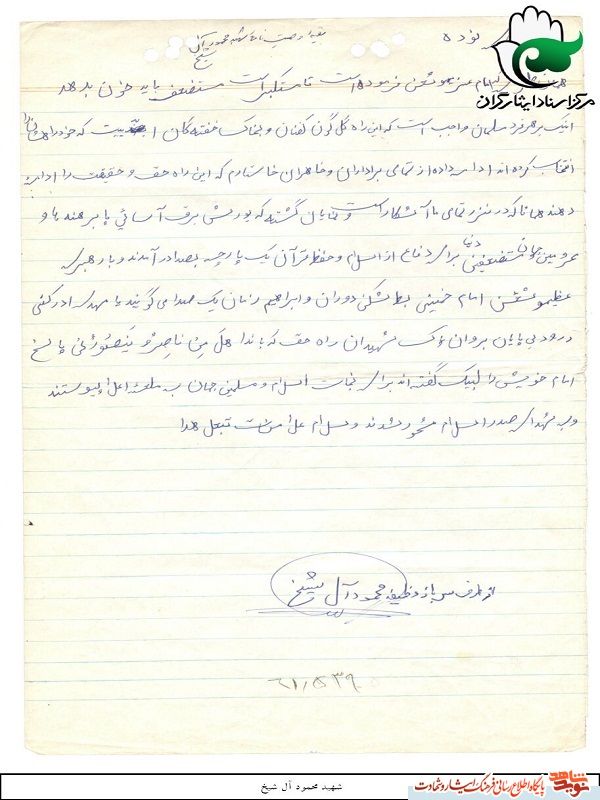 بقیه از وصیت نامه شهید محمود آل شیخ
مرکز اسناد ایثارگران
امام عزیزمون فرموده است تا مستکبر است مستضعف باید خون بدهد
اینک بر هر فرد مسلمان واجب است که این راه گل گون کفنان و بخاک خفته گان که خود راهی را
انتخاب کرده اند ادامه داده از تمامی برادران و خواهران خواستارم که این راه حق و حقیقت را ادامه
دهند همانا که در نزد تمامی ما آشکار است و نمایان گشته که یورش برق آسائی پا برهنه ها و
محرومین جهان مستضعفین دنیا برای دفاع از اسلام و حفظ قرآن یک پارچه بصدا در آمدند و با رهبری
امام خمینی بت شکن دوران و ابراهیم زمان یک صدا می گویند یا مهدی ادرکنی
درود بی پایان بروان پاک شهیدان راه حق که با ندا هل من ناصر ینصرنی پاسخ
امام خویش را لبیک گفته اند برای نجات اسلام و مسلمین جهان به ملحق اعلا پیوستند
و به شهدای صدر اسلام محشور شدند و سلام علی من تبعل هدا
از طرف سرباز وظیفه محمود آل شیخ
شهید محمود آل شیخ
نوید شاهد
پایگاه اطلاع رسانی فرهنگ ایثار و شهادت